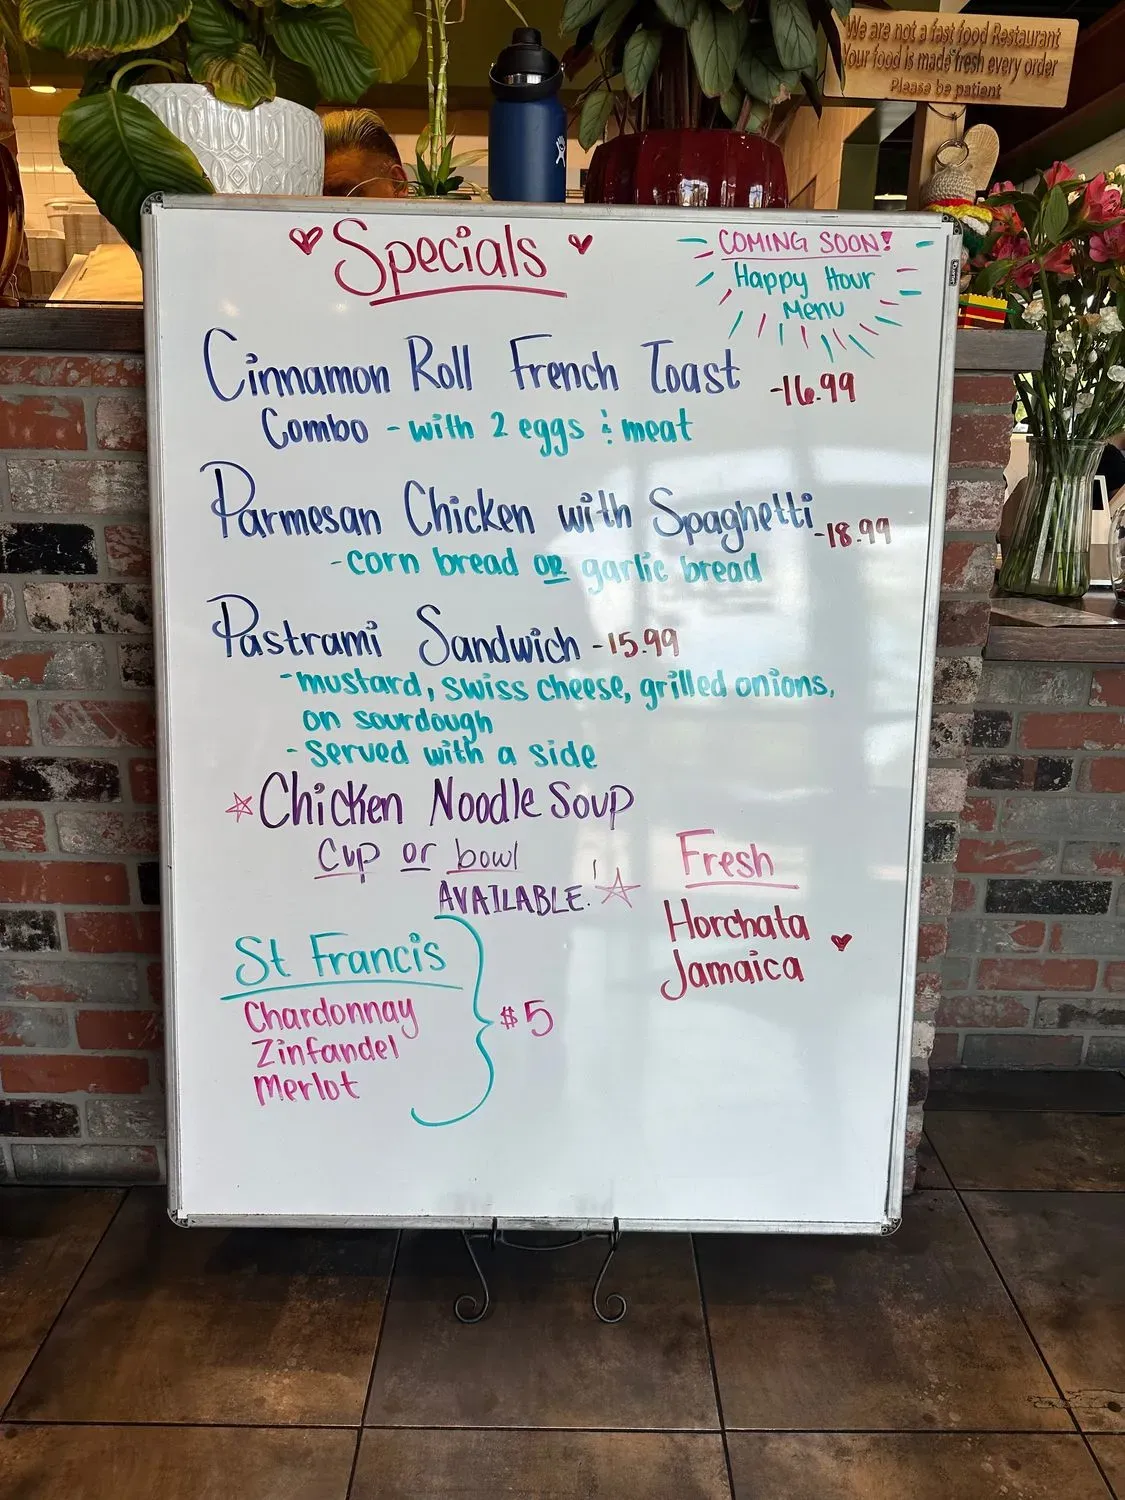 We are not a fast food Restaurant
Your food is made fresh every order
Please be patient
Specials
COMING SOON!
Happy Hour
Menu
Cinnamon Roll French Toast -16.99
Combo - with 2 eggs & meat
Parmesan Chicken with Spaghetti -18.99
- corn bread or garlic bread
Pastrami Sandwich - 15.99
- mustard, swiss cheese, grilled onions,
on sourdough
- Served with a side
Chicken Noodle Soup
Cup or bowl
AVAILABLE!
Fresh
Horchata
Jamaica
St Francis
Chardonnay
Zinfandel
Merlot
$5